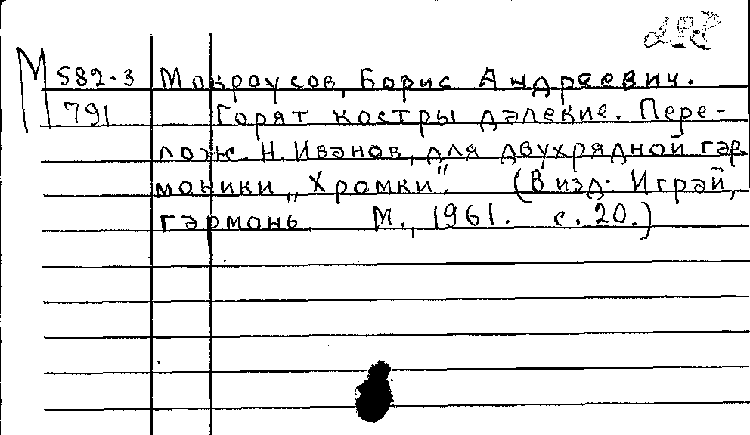 М 582-3 Мокроусов, Борис Андреевич.
791 Горят костры далекие. Пере-
лож. Н. Иванов, для двухрядной гар
моники „Хромки". (В изд: Играй,
гармонь. М., 1961. с. 20.)